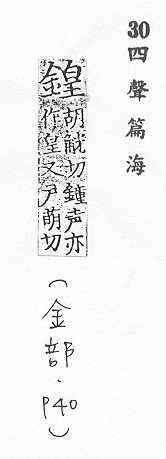 30四聲篇海
鍠
胡觥切鍾声亦
作又戶萌切
（金部．P40）